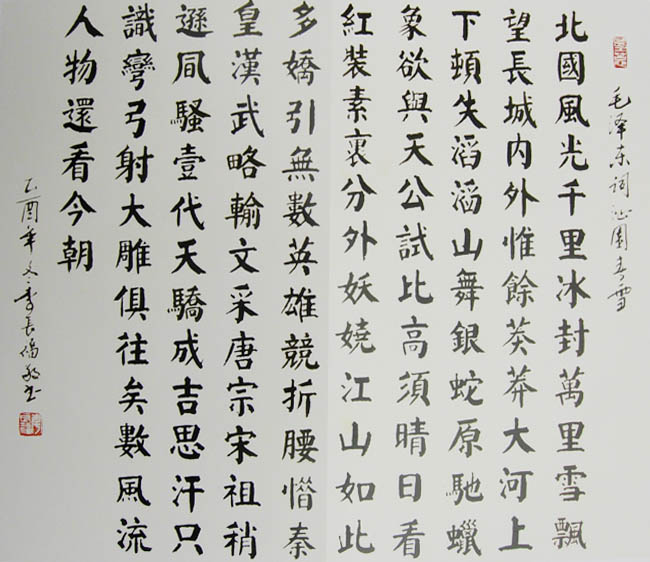 毛泽东词沁園春雪
北國風光千里冰封萬里雪飄
望長城內外惟餘莽莽大河上
下頓失滔滔山舞銀蛇原馳蠟
象欲與天公試比高須晴日看
紅裝素裹分外妖嬈江山如此
多嬌引無數英雄競折腰惜秦
皇漢武略輸文采唐宗宋祖稍
遜風騷壹代天驕成吉思汗只
識彎弓射大雕俱往矣數風流
人物還看今朝
乙酉年冬李長